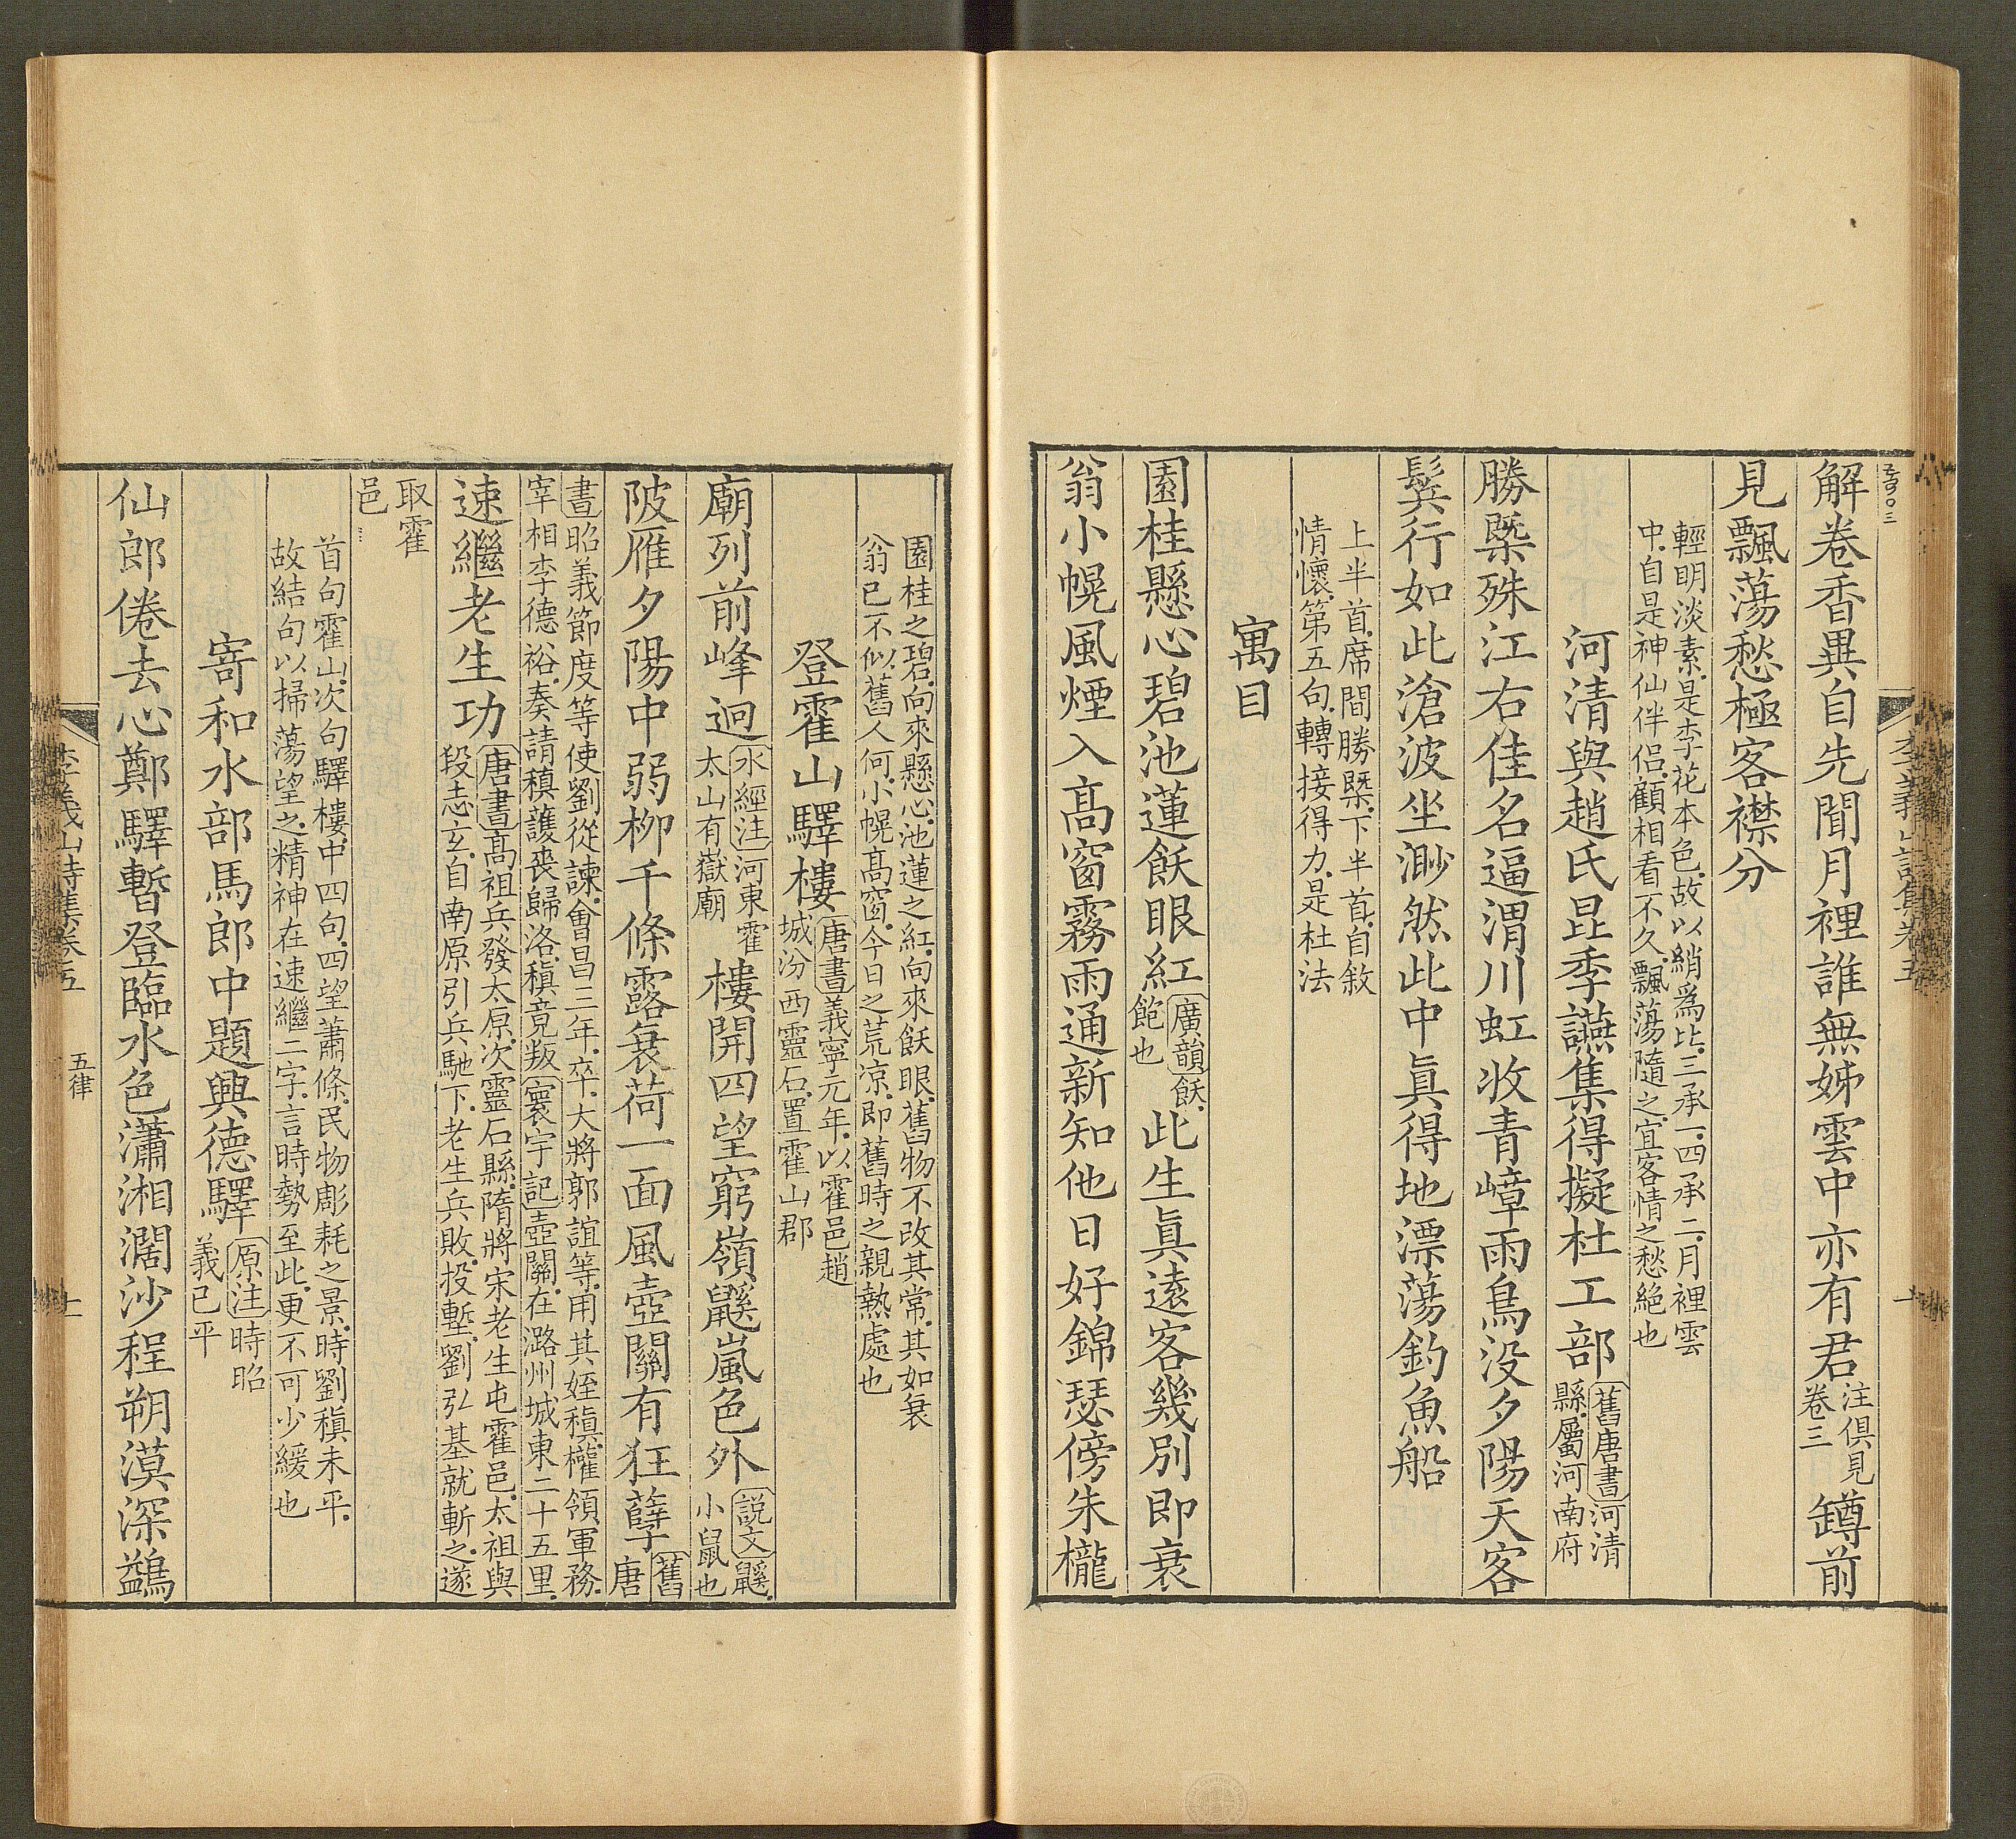 解卷香異自先聞月裡誰無姊雲中亦有君注俱見卷三罇前
見飄蕩愁極客襟分
輕明淡素是李花本色故以綃爲比三承一四承二月裡雲
中自是神仙伴侶顧相看不久飄蕩隨之宜客情之愁絕也
河清與趙氏昆季讌集得擬杜工部舊唐書河清縣屬河南府
勝槩殊江右佳名逼渭川虹收青嶂雨鳥没夕陽天客
鬂行如此滄波坐渺然此中眞得地漂蕩釣魚船
上半首席間勝槩下半首自敘
情懷第五句轉接得力是杜法
寓目
園桂懸心碧池蓮飫眼紅廣韻飫飽也此生眞遠客幾別即衰
翁小幌風煙入高窗霧雨通新知他日好錦瑟傍朱櫳
園桂之碧向來懸心池蓮之紅向來飫眼舊物不改其常其如衰
翁已不似舊人何小幌高窗今日之荒凉即舊時之親熱處也
登霍山驛樓唐書義寧元年以霍邑趙城汾西靈石置霍山郡
廟列前峰迥水經注河東霍太山有嶽廟樓開四望窮嶺鼷嵐色外説文鼷小鼠也
陂雁夕陽中弱栁千條露衰荷一面風壺關有狂孽舊唐
書昭義節度等使劉從諫會昌三年卒大將郭誼等用其姪稹權領軍務
宰相李德裕奏請稹護喪歸洛稹竟叛寰宇記壺關在潞州城東二十五里
速繼老生功唐書高祖兵發太原次靈石縣隋將宋老生屯霍邑太祖與
段志玄自南原引兵馳下老生兵敗投塹劉弘基就斬之遂
取霍
邑
首句霍山次句驛樓中四句四望蕭條民物彫耗之景時劉稹未平
故結句以掃蕩望之精神在速繼二字言時勢至此更不可少緩也
寄和水部馬郎中題興德驛原注時昭義已平
仙郎倦去心鄭驛暫登臨水色瀟湘濶沙程朔漠深鷁
李義山詩集卷五
五律